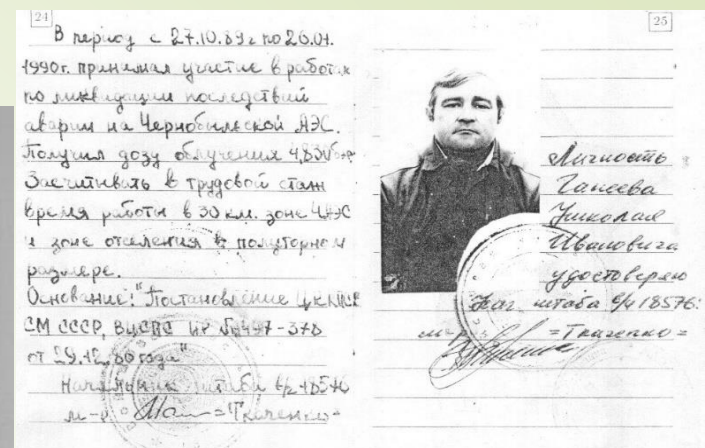 24
В период с 27.10.89г по 26.01.
1990г. принимал участие в работах
по ликвидации последствий
аварии на Чернобыльской АЭС.
Получил дозу облучения 4,831бэр.
Засчитывать в трудовой стаж
время работы в 30 км. зоне ЧАЭС
и зоне отселения в полуторном
размере.
Основание: "Постановление ЦК КПСС
СМ СССР, ВЦСПС №497-378
от 29.12.86 года"
Начальник штаба в/ч 18576
м-р =Ткаченко=
25
Личность
Николая
Ивановича
удостоверяю
Нач штаба в/ч 18576:
м-р =Ткаченко=